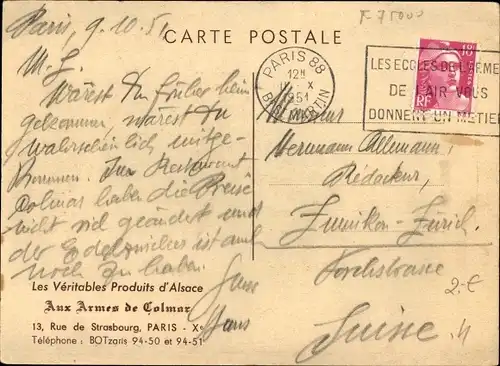 F-75000
Paris, 9.10.51
CARTE POSTALE
PARIS 88
12H
X
1951
LES ECOLES DE L'ARMEE
DE L'AIR VOUS
DONNENT UN METIER
18F
RF
M. L.
Wärest du früher heim
gekommen, wärest du
wahrscheinlich mitge-
kommen. Im Restaurant
Colmar haben die Preise
nicht viel geändert und
der Edelzwicker ist auch
noch zu haben.
Hans
Monsieur
Hermann Allemann,
Rédacteur,
Zumikon-Zürich.
Forchstrasse
2.-€
Suisse
Les Véritables Produits d'Alsace
Aux Armes de Colmar
13, Rue de Strasbourg, PARIS - Xe
Téléphone : BOTzaris 94-50 et 94-51